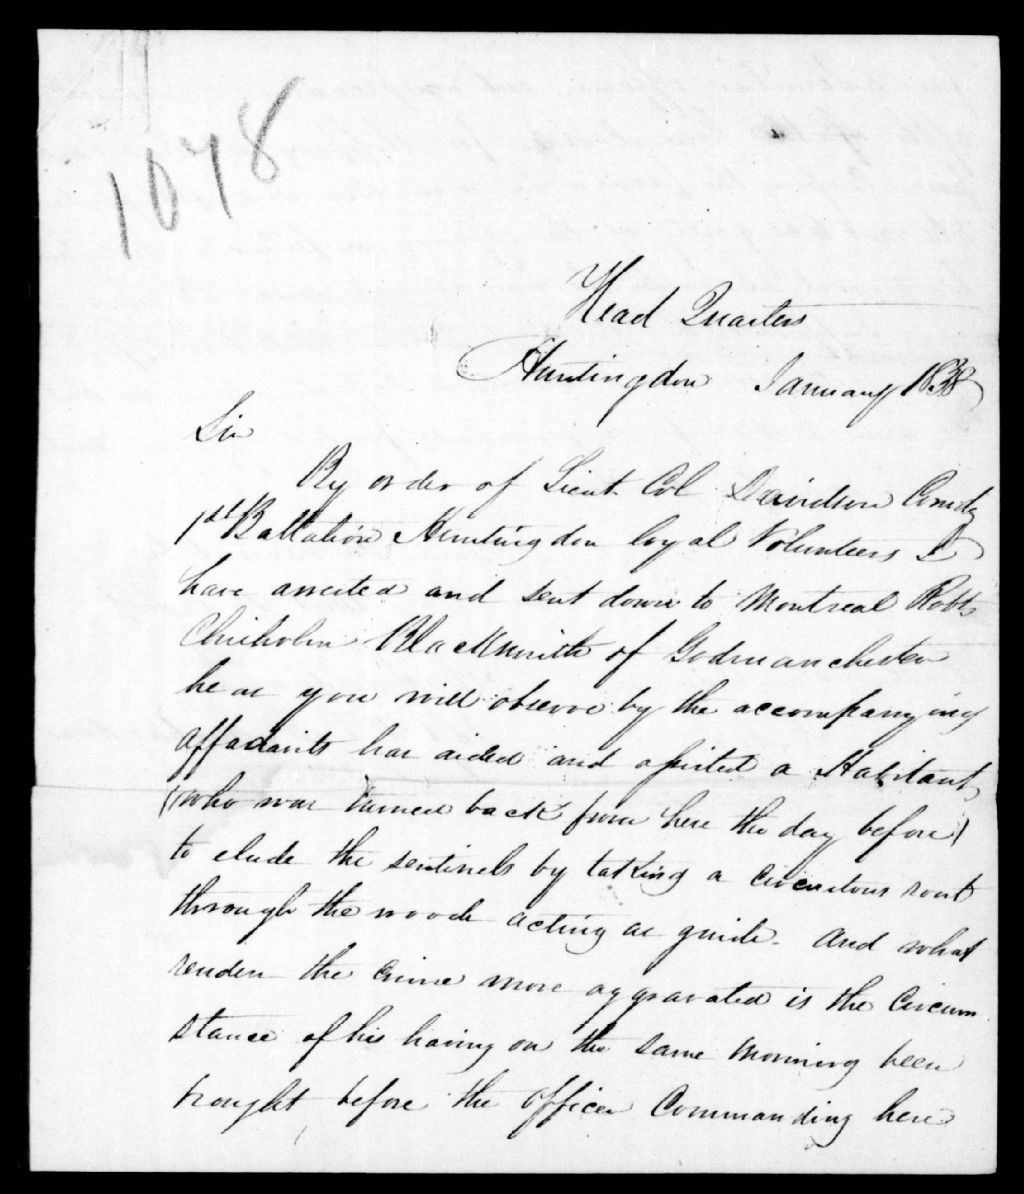 1078
Head Quarters
Huntingdon January 1838
Sir
By order of Lieut Col Davidson Comdg
1st Battalion Huntingdon loyal Volunteers I
have arrested and sent down to Montreal Robt
Chisholm Blacksmith of Godmanchester
he as you will observe by the accompanying
affadavits has aided and assisted a Habitant
(who was turned back from here the day before)
to elude the sentinels by taking a circuitous rout
through the woods acting as guide. And what
render the crime more aggravated is the Circum
stance of his having on the same morning been
brought before the officer Commanding here